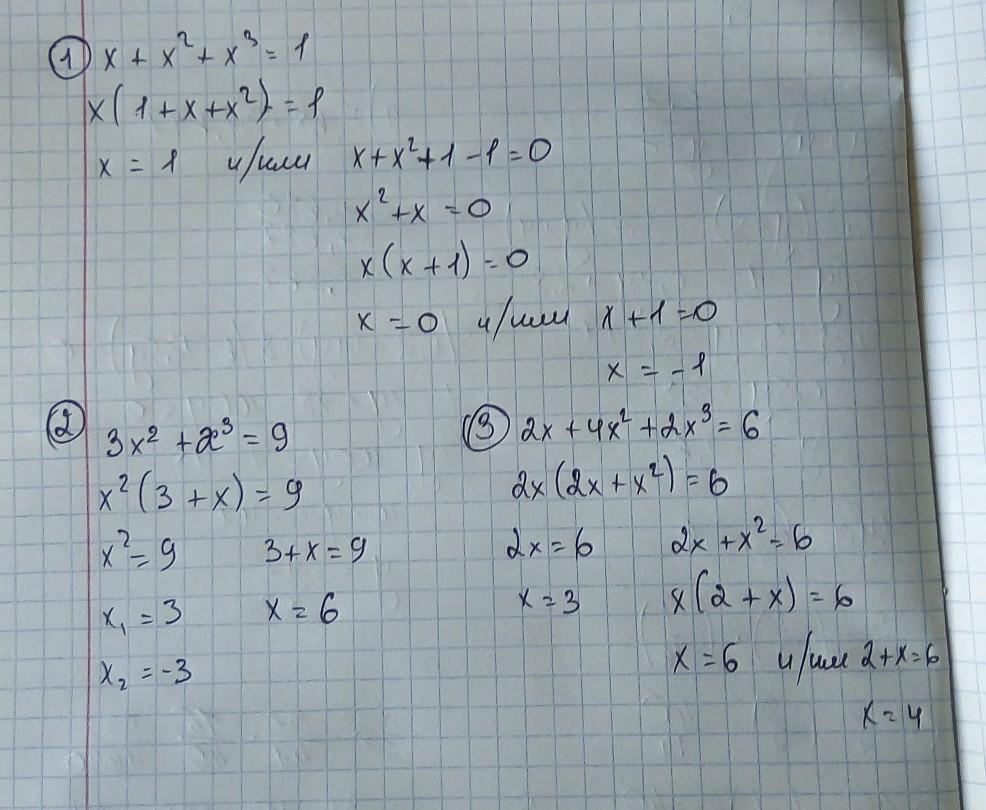 ① x + x² + x³ = 1
x(1 + x + x²) = 1
x = 1 и/или x + x² + 1 - 1 = 0
x² + x = 0
x(x + 1) = 0
x = 0 и/или x + 1 = 0
x = -1
② 3x² + x³ = 9
x²(3 + x) = 9
x² = 9 3 + x = 9
x₁ = 3 x = 6
x₂ = -3
③ 2x + 4x² + 2x³ = 6
2x(2x + x²) = 6
2x = 6 2x + x² = 6
x = 3 x(2 + x) = 6
x = 6 и/или 2 + x = 6
x = 4